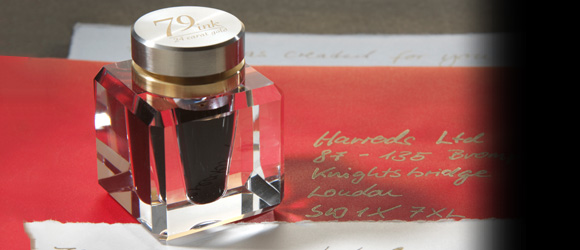 79 ink
24 carat gold
created for you
Harrods Ltd
87 - 135 Brom
Knightsbridge
London
SW1X 7XL